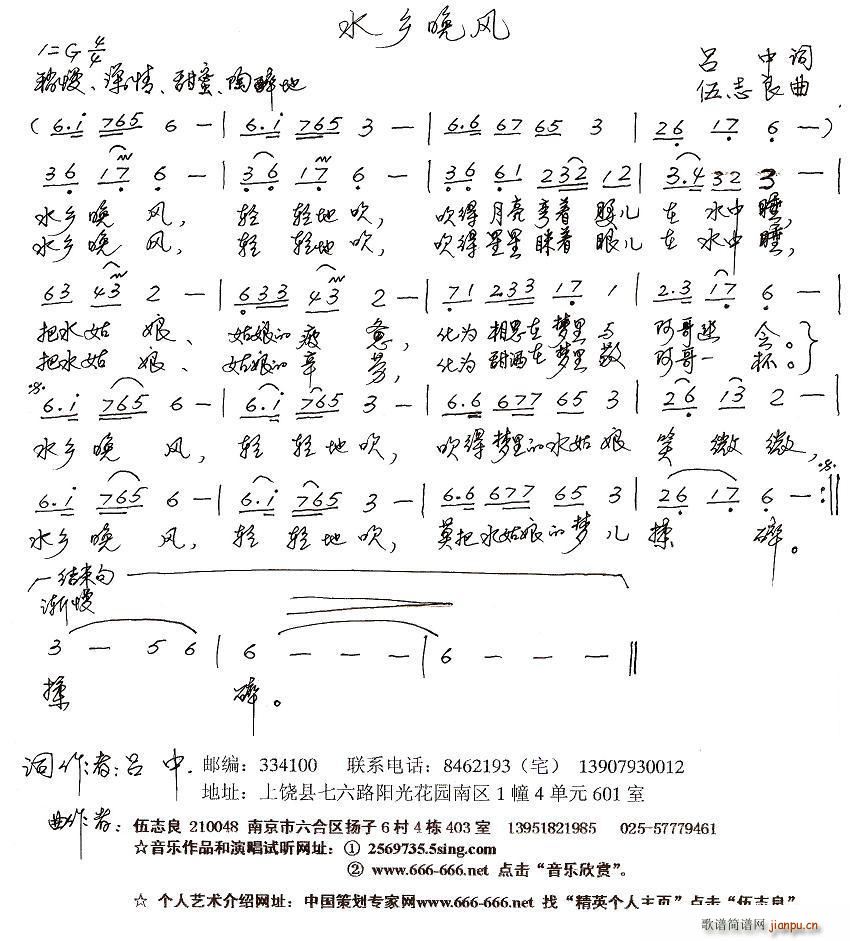 水乡晚风
1=G 4/4
吕中词
稍慢、深情、甜蜜、陶醉地
伍志良曲
(6.i 765 6 - | 6.i 765 3 - | 6.6 67 65 3 | 26 17 6 -)
36 17 6 - | 36 17 6 - | 36 61 232 12 | 3.4 32 3 - |
水乡晚风,轻轻地吹,吹得月亮弯着腰儿在水中睡,
水乡晚风,轻轻地吹,吹得星星眯着眼儿在水中睡,
63 43 2 - | 633 43 2 - | 71 233 17 1 | 2.3 17 6 - |
把水姑娘、姑娘的疲惫,化为相思在梦里与阿哥幽会。
把水姑娘、姑娘的辛劳,化为甜酒在梦里敬阿哥一杯。
6.i 765 6 - | 6.i 765 3 - | 6.6 677 65 3 | 26 13 2 - |
水乡晚风,轻轻地吹,吹得梦里的水姑娘笑微微,
6.i 765 6 - | 6.i 765 3 - | 6.6 677 65 3 | 26 17 6 - :||
水乡晚风,轻轻地吹,莫把水姑娘的梦儿揉碎。
结束句
渐慢
3 - 5 6 | 6 - - - | 6 - - - ||
揉碎。
词作者:吕中. 邮编:334100 联系电话:8462193(宅) 13907930012
地址:上饶县七六路阳光花园南区1幢4单元601室
曲作者:伍志良 210048 南京市六合区扬子6村4栋403室 13951821985 025-57779461
☆音乐作品和演唱试听网址:① 2569735.5sing.com
② www.666-666.net 点击“音乐欣赏”。
☆ 个人艺术介绍网址:中国策划专家网www.666-666.net 找“精英个人主页”点击“伍志良”
歌谱简谱网 jianpu.cn